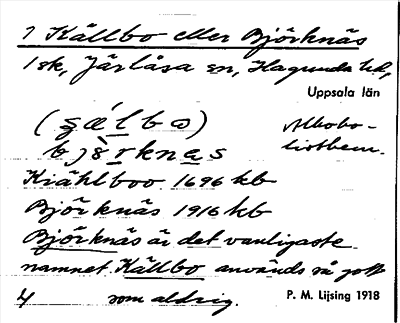 1 Källbo eller Björknäs
1 sk, Järlåsa sn, Hagunda hd,
Uppsala län
(ҙǽlbo) Allbobo-
bjö̀rknas listbem.
Kiählboo 1696 kb
Björknäs 1916 kb
Björknäs är det vanligaste
namnet. Källbo används så gott
4 som aldrig. P. M. Lijsing 1918